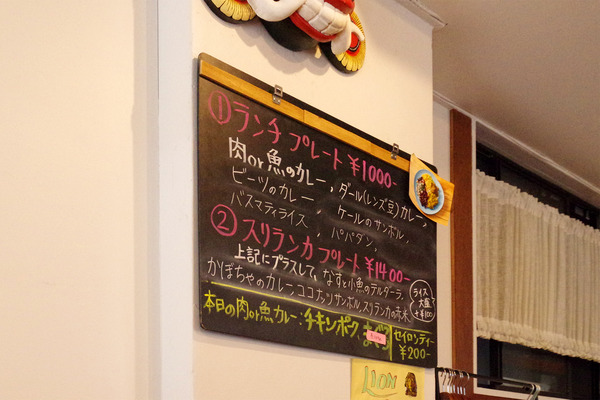 ① ランチ プレート ¥1000-
肉or魚のカレー, ダール(レンズ豆)カレー,
ビーツのカレー, ケールのサンボル,
バスマティライス, パパダン,
② スリランカ プレート ¥1400-
上記にプラスして, なすと小魚のテルダーラ,
かぼちゃのカレー, ココナッツサンボル, スリランカの赤米,
ライス
大盛
+¥100
本日の肉or魚カレー: チキンポーク, まぐろ
セイロンティー
¥200-
LION